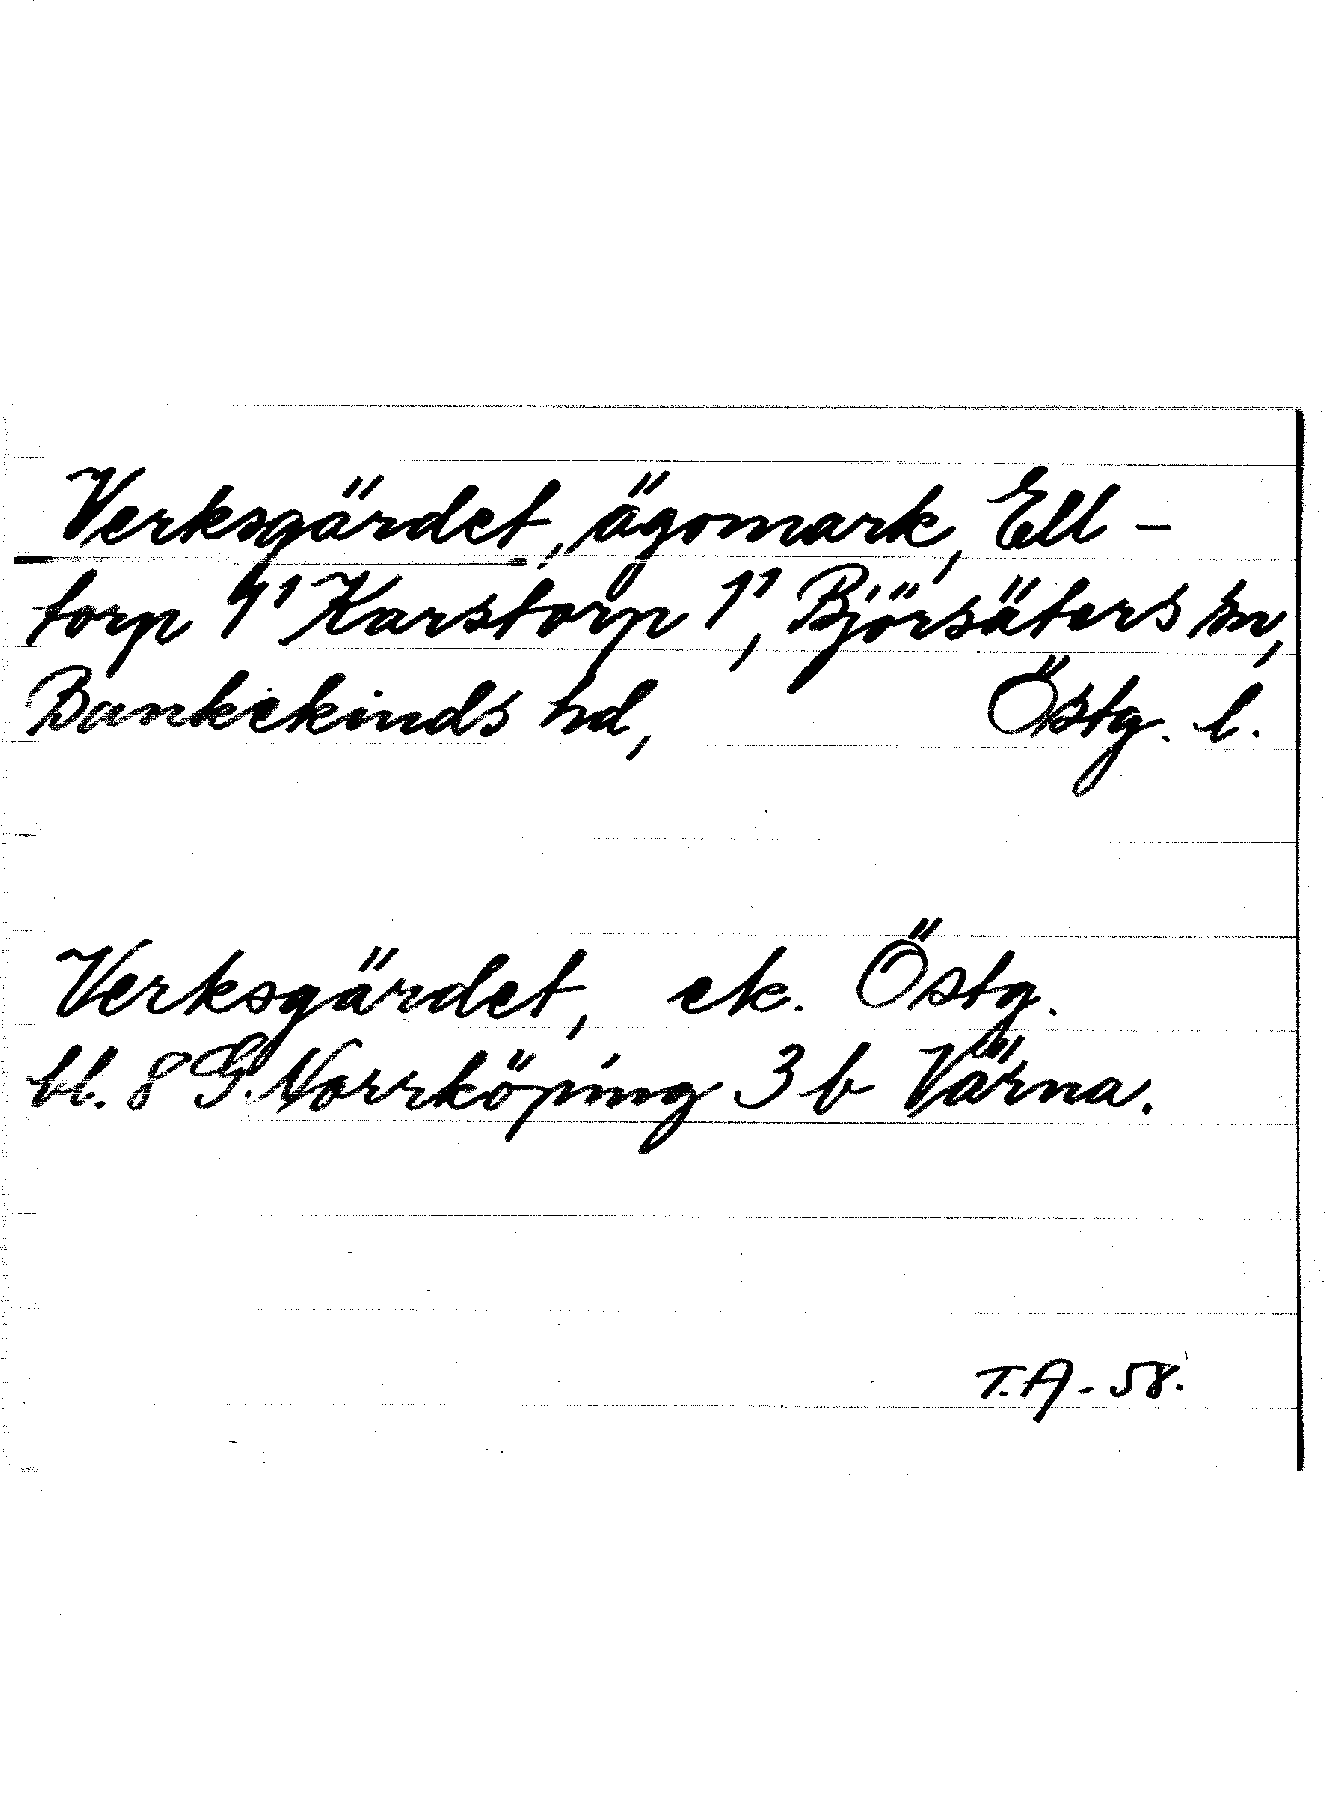 Verksgärdet, ägomark, Ell-
torp 1¹ Karstorp 1¹, Björsäters sn,
Bankekinds hd, Östg. l.
Verksgärdet, ek. Östg.
bl. 8 G. Norrköping 3 b Värna.
T.A - 58.